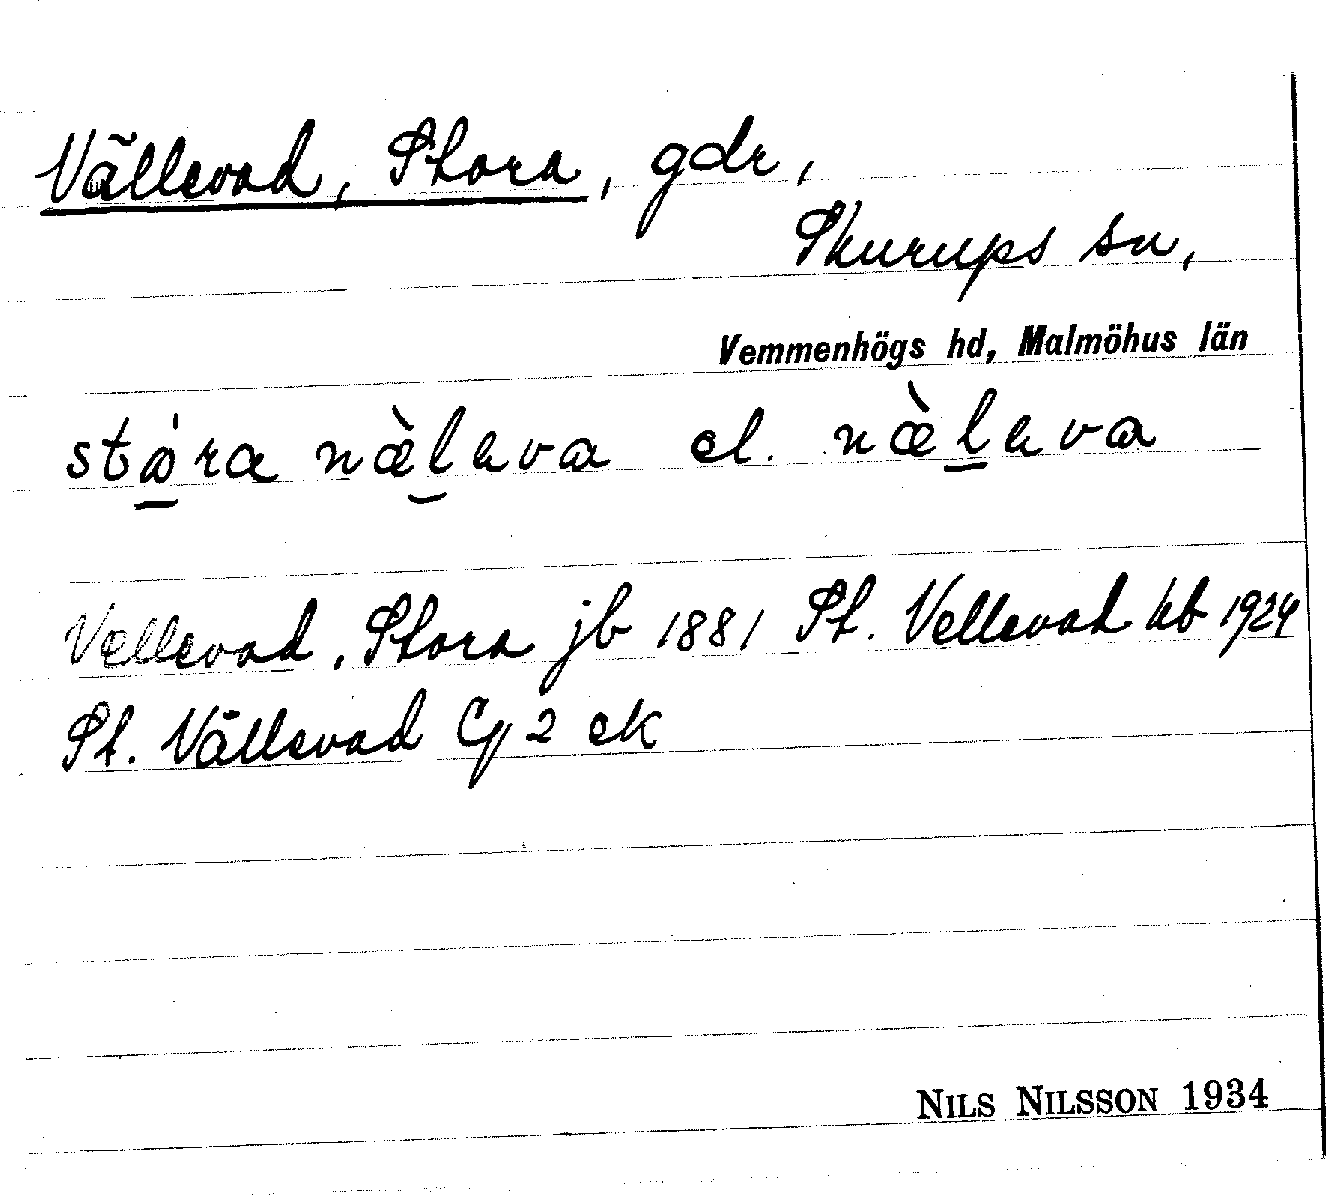 Vällevad, Stora, gdr,
Skurups sn,
Vemmenhögs hd, Malmöhus län
stọ́ra næ̀lava el. næ̀lava
Vellevad, Stora jb 1881 St. Vellevad kb 1924
St. Vällevad 2 ek
NILS NILSSON 1934